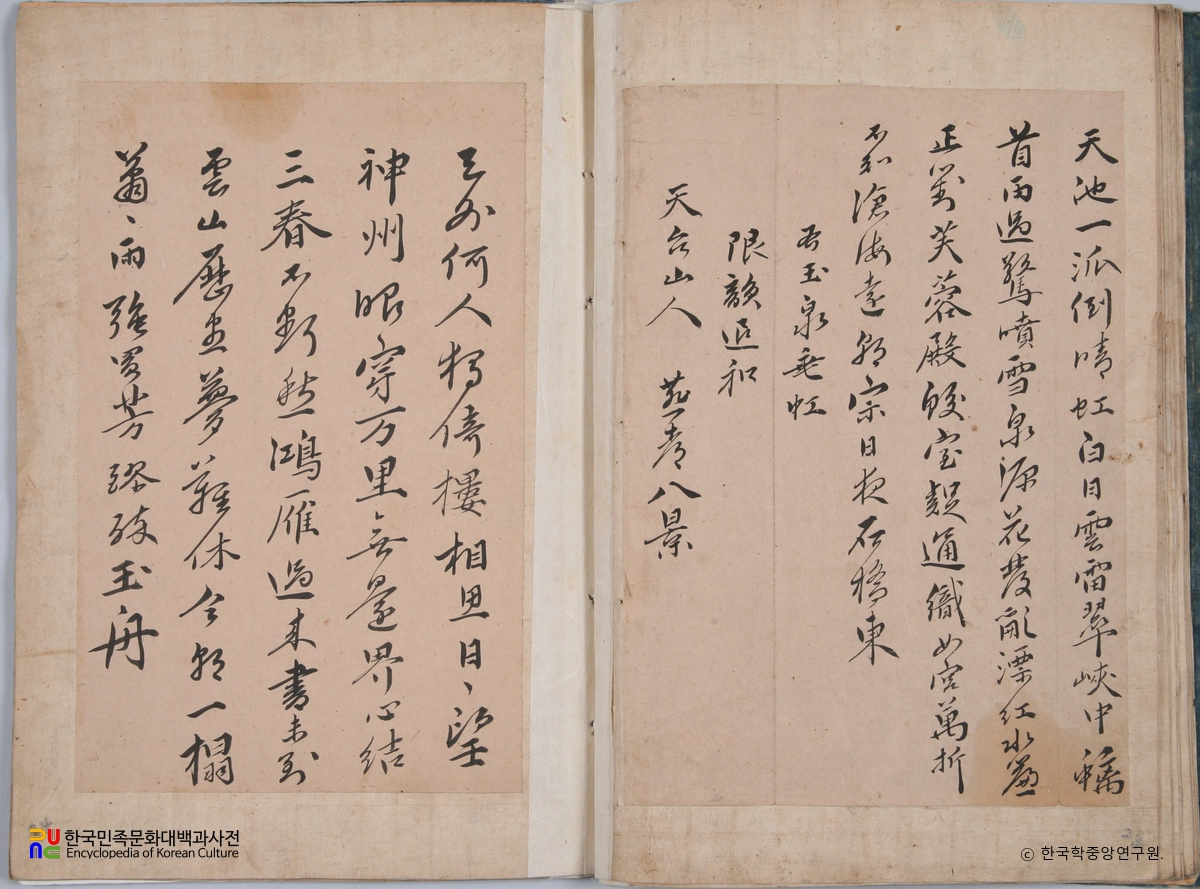 天池一派倒晴虹白日雲雷翠峽中
首雨過驚噴雪泉源花發亂漂紅水簾
正對芙蓉殿鮫室疑通織女宮萬折
不知滄海遠朝宗日夜石橋東
右玉泉垂虹
限韻追和
天台山人 燕都八景
天外何人獨倚樓相思日〻望
神州眼穿万里無邊界心結
三春不斷愁鴻雁過來書未到
雲山歷盡夢難休今朝一榻
蕭〻雨強芳醪玉舟
한국민족문화대백과사전
Encyclopedia of Korean Culture
© 한국학중앙연구원.